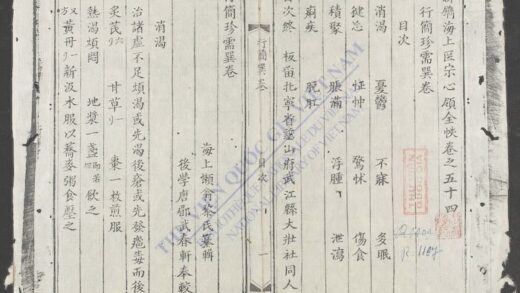 新鐫海上医宗心領全帙卷之五十四
行簡珍需巽卷
目次
消渴 憂鬱 不寐 多眠
健忘 怔忡 驚悸 傷食
積聚 脹滿 浮腫 泄瀉
痢疾 脫肛
目次終 板留北寧省慈山府武江縣大壯社同人
行簡巽卷 目次 一
海上懶翁黎氏纂輯
後學唐郿武春軒奉載
消渴
治諸虛不足煩渴或先渴後瘡或先發瘡毒而後
炙芪 甘草 棗一枚煎服
熱渴煩悶 地漿一盞 飲之
又方黃丹 新汲水服以蕎麥粥食壓之
THƯ VIỆN QUỐC GIA VIỆT NAM
NATIONAL LIBRARY OF VIETNAM
R.1187